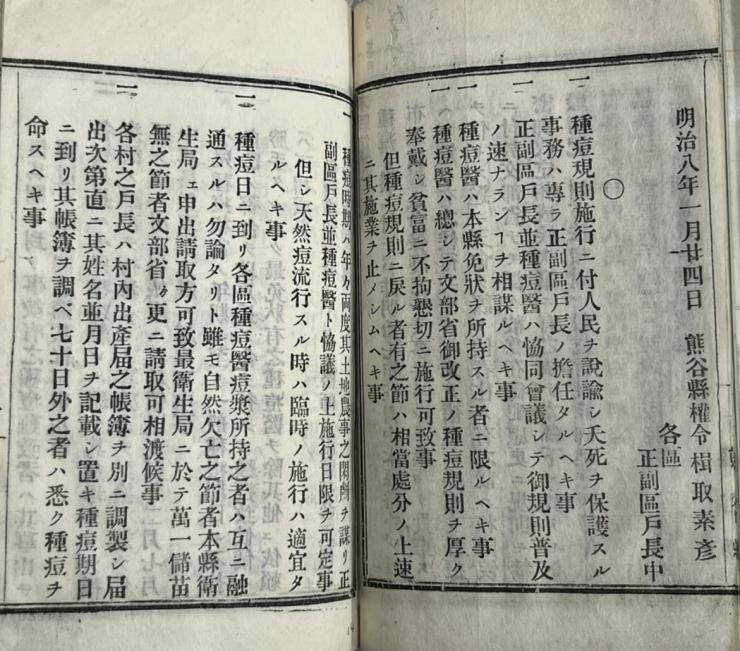 明治八年一月廿四日　熊谷縣權令楫取素彥
各區
正副區戶長中
○
一　種痘規則施行ニ付人民ヲ說諭シ夭死ヲ保護スル
事務ハ專ラ正副區戶長ノ擔任タルヘキ事
一　正副區戶長並種痘醫ハ協同會議シテ御規則普及
ノ速ナランヿヲ相謀ルヘキ事
一　種痘醫ハ本縣免狀ヲ所持スル者ニ限ルヘキ事
一　種痘醫ハ總シテ文部省御改正ノ種痘規則ヲ厚ク
奉戴シ貧富ニ不拘懇切ニ施行可致事
但種痘規則ニ戾ル者有之節ハ相當處分ノ上速
ニ其施業ヲ止メシムヘキ事
一　種痘時期ハ年々兩度其土地農事之閑隙ヲ謀リ正
副區戶長並種痘醫ト恊議ノ上施行日限ヲ可定事
但シ天然痘流行スル時ハ臨時ノ施行ハ適宜タ
ルヘキ事
一　種痘日ニ到リ各區種痘醫痘漿所持之者ハ互ニ融
通スルハ勿論タリト雖モ自然欠亡之節者本縣衛
生局ェ申出請取方可致最衛生局ニ於テ萬一儲苗
無之節者文部省ゟ更ニ請取可相渡候事
一　各村之戶長ハ村內出產屆之帳簿ヲ別ニ調製シ屆
出次第直ニ其姓名並月日ヲ記載シ置キ種痘期日
ニ到リ其帳簿ヲ調ベ七十日外之者ハ悉ク種痘ヲ
命スヘキ事